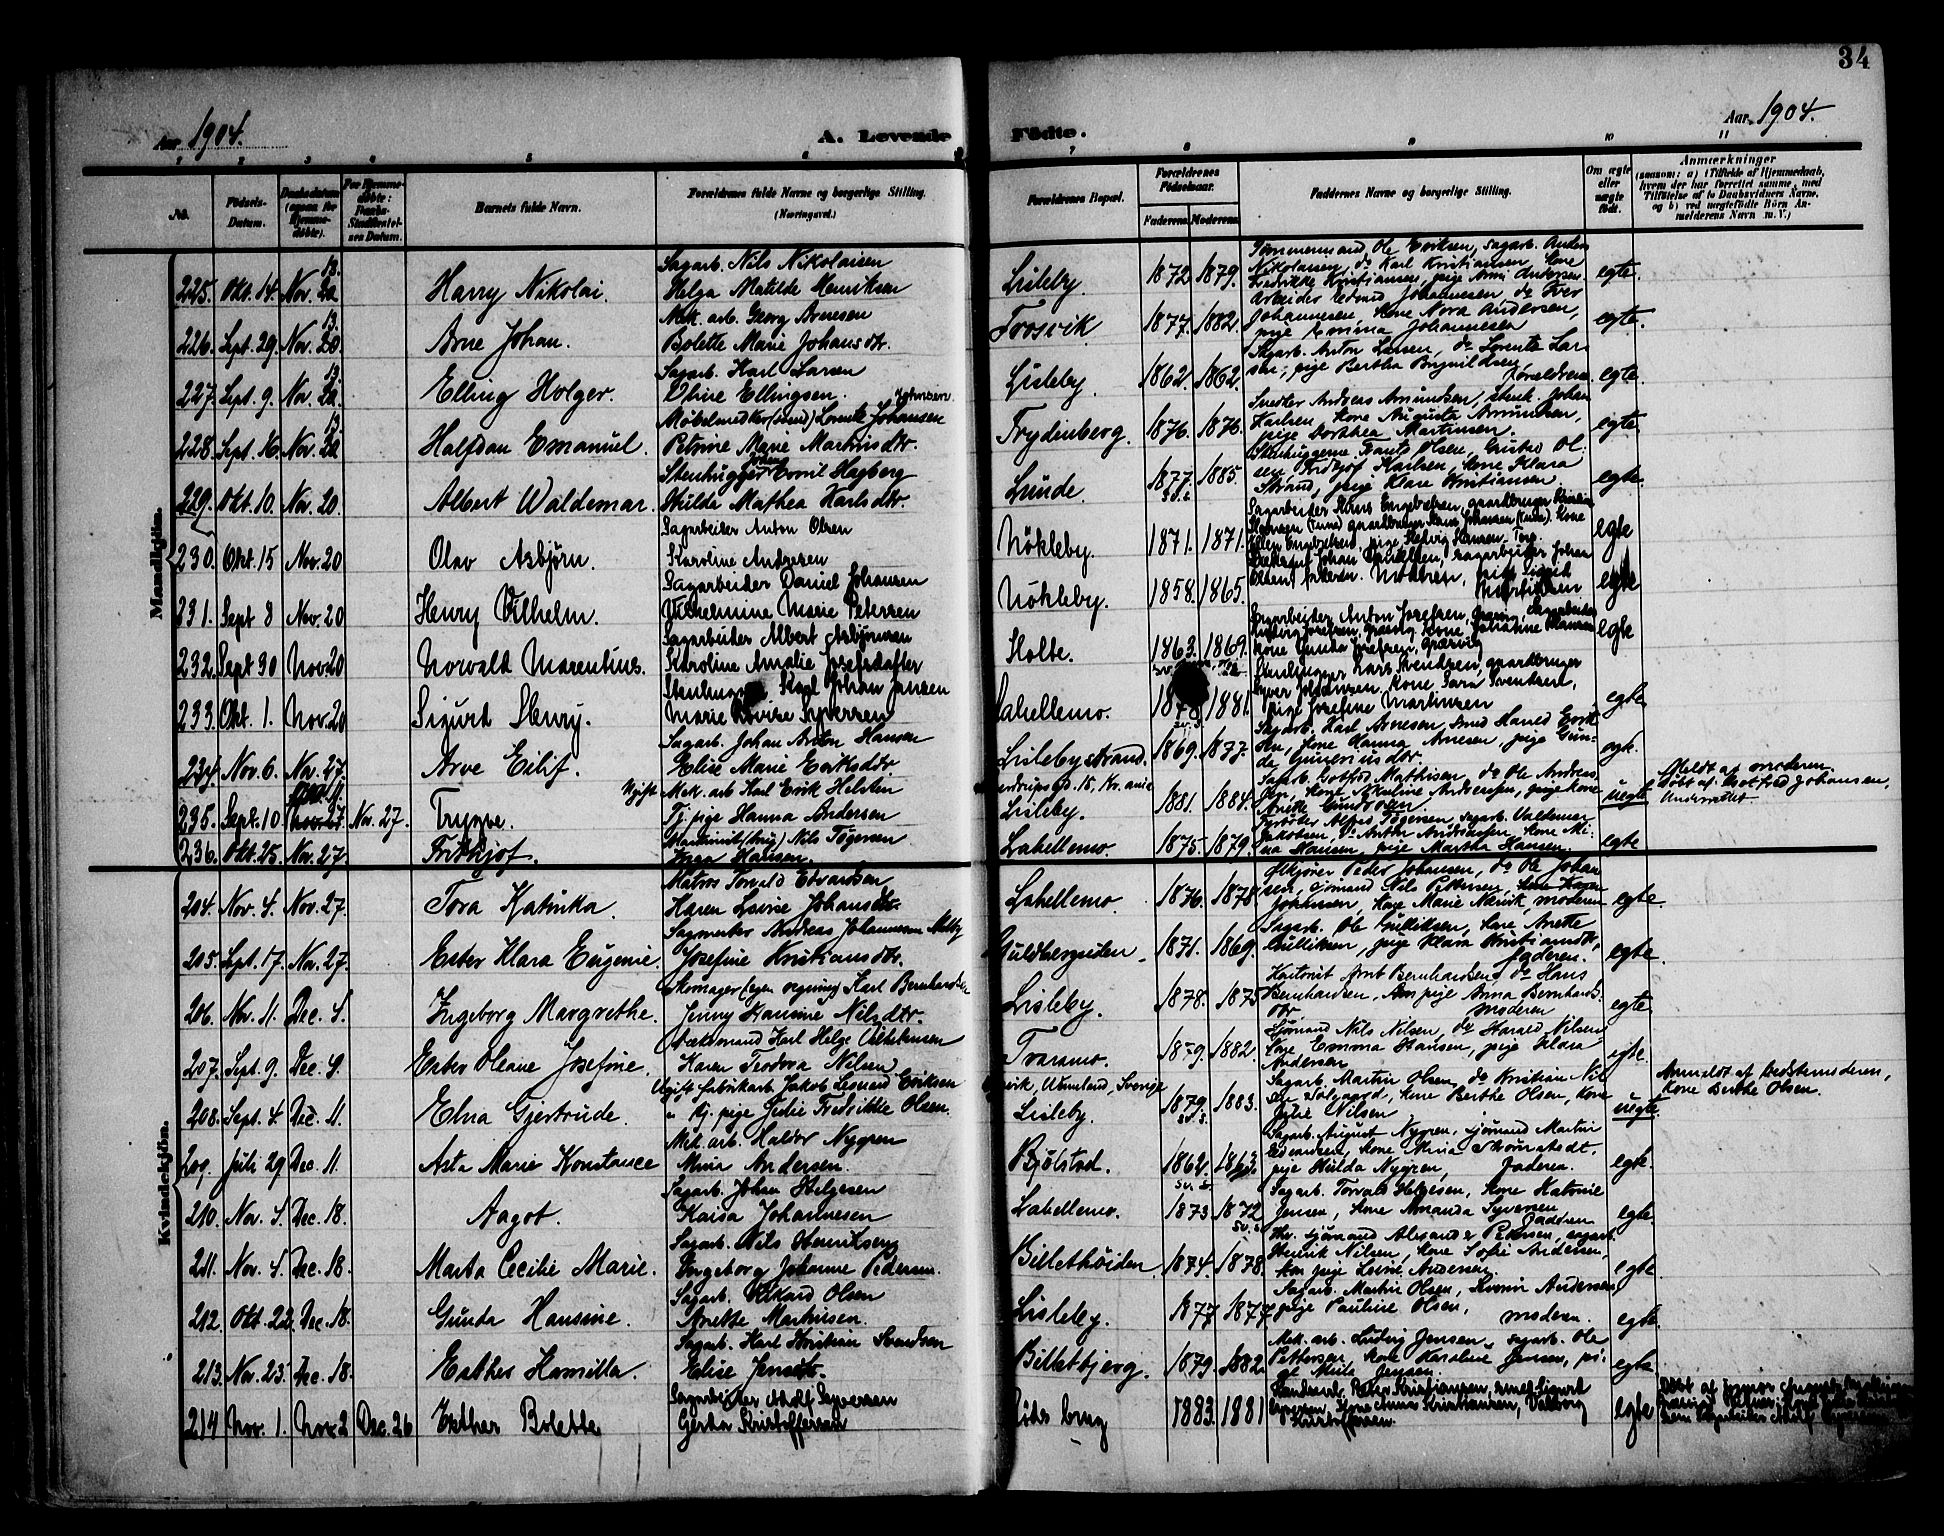 34
Aar 1904.
A. Levende
Födte.
Aar 1904.
1 2 3 4 5 6 7 8 9 10 11
No.
Födsels-Datum.
Daabsdatum (ogsaa for Hjemmedöbte).
For Hjemmedöbte: Daabs-Stadfæstelsens Datum.
Barnets fulde Navn.
Forældrenes fulde Navne og borgerlige Stilling. (Næringsvej.)
Forældrenes Bopæl.
Forældrenes Födselsaar.
Faderens. Moderens.
Faddernes Navne og borgerlige Stilling.
Om ægte eller uægte födt.
Anmærkninger
(saasom: a) i Tilfælde af Hjemmedaab,
hvem der har forrettet samme, med
Tilföielse af to Daabsvidners Navne,
og b) ved uægtefödte Börn An-
melderens Navn m. V.)
Mandkjön.
225. Okt. 14. Nov. 13. Harry Nikolai. Sagarb. Nils Nikolaisen
Helga Matilde Henriksen Lisleby. 1872 1879. Tömmermand Ole Eriksen, sagarb. Anders
Nikolaisen, do Karl Kristiansen, kone
Fredrikke Kristiansen, pige Anni Andersen. egte.
226. Sept. 29. Nov. 13. Arne Johan. Mek. arb. Georg Arnesen
Bolette Marie Johansdtr. Trosvik 1877. 1882. Arbeider Edvard Johannesen, do Iver
Johannesen, kone Nora Andersen,
pige Emma Johannesen egte.
227. Sept. 9. Nov. 13. Elling Holger. Sagarb. Karl Larsen
Oline Ellingsen. Lisleby. 1862. 1862. Sagarb. Anton Larsen, do Lorents Lar-
sen, pige Bertha Brynildsen, forældrene egte.
228. Sept. 16. Nov. 13. Halfdan Emanuel. Johansen
Petrine Marie Martinsdtr. Trydenberg. 1876. 1876. Snedker Andreas Amundsen, stenh. Johan
Karlsen, kone Augusta Amundsen,
pige Dorthea Martinsen. egte
229. Okt. 10. Nov. 20. Albert Waldemar. Stenhugger Johan Emil Hagberg
Hulda Mathea Karlsdtr. Lunde. 1877. 1885. Stenhuggerne Frants Olsen, Gustav Ol-
sen, Fridtjof Karlsen, kone Klara
Strand, pige Klara Kristiansen. egte.
230. Okt. 15 Nov. 20 Olav Asbjörn. Sagarbeider Anton Olsen
Karoline Andresen Nökleby. 1871. 1871. Sagarbeider Hans Engebretsen, gaardbruger
Hansen (Tune) gaardbruger Hans Johansen (Tune). Kone
Ellen Engebretsen, pige Hedvig Hansen. Tune. egte
231. Sept 8 Nov. 20 Henry Vilhelm. Sagarbeider Daniel Johansen
Vilhelmine Marie Petersen Nökleby. 1858. 1865. Johan sagarbeider Johan
faderen. Moderen, pige Sigrid
Martinsen egte
232. Sept 30 Nov. 20 Norvald Marentius. Sagarbeider Albert Asbjörnsen
Karoline Amalie Josefsdatter Holte. 1863. 1869. Sagarbeider Anton Josefsen, Græsvig, sagarbeider
Ludvig Josefsen, Græsvig kone Josefine Hansen
kone Gunda Josefsen, Græsvig egte
233. Okt. 1. Nov. 20 Sigurd Henry. Karl Johan Jansen
Marie Lovise Syversen Lahellemo. 1881. Stenhugger Lars Svendsen, gaardbruger
Syver Johansen, kone Sara Svendsen,
pige Josefine Martinsen egte
234. Nov. 6. Nov. 27. Arve Eilif. Sagarb. Johan Anton Hansen
Elise Marie Eriksdtr. Lislebystrand. 1869. 1877. Sagarb. Karl Arnesen, smed Harald Erik-
sen, kone Hanna Arnesen, pige Gun-
da Gunerius dtr. egt.
235. Sept. 10 Nov. 27. Trygve. Ugift Mek. arb. Karl Erik Helsten
Tj. pige Hanna Andersen Lisleby. 1881. 1884. Sagarb. Gotfred Mathisen, do Ole Andreas-
sen, kone Pauline Andersen, pige kone
Anette Gundersen uegte Meldt af moderen.
Döbt af Gotfred Johansen,
236. Okt. 25. Nov. 27 Frithjof. Nils Tögersen
Inga Hansen. Lahellemo. 1875. 1879. Fyrböter Alfred Tögersen, sagarb. Valdemar
Jakobsen, do Anton Andreassen, kone Mi-
na Hansen, pige Martha Hansen. egte
Kvindekjön.
204. Nov. 4. Nov. 27. Tora Katinka. Matros Torvald Edvardsen
Karen Lovise Johansdtr. Lahellemo. 1876. 1878. Peder Johansen, do Ole Johan-
sen, sjömand Nils Pettersen, kone Karen
Johansen, kone Marie Narvik, moderen egte.
205. Sept. 17. Nov. 27. Ester Klara Eugenie. Sagmester Andreas Johannesen Melby
Josefine Kristiansdtr. Guldbergsiden 1871. 1869. Sagarb. Ole Gulliksen, kone Anette
Gulliksen, pige Klara Kristiansdtr,
faderen. egte.
206. Nov. 11. Dec. 4. Ingeborg Margrethe. Skomager (egen regning) Karl Bernhardsen
Jenny Hansine Nilsdtr. Lisleby. 1878. 1875 Kontorist Arnt Bernhardsen, do Hans
Bernhardsen, pige Anna Bernhards-
dtr. moderen egte
207. Sept. 9. Dec. 4. Ester Oleane Josefine. Karl Helge Vilhelmsen
Karen Teodora Nilsen Taramo. 1879. 1882. Sjömand Nils Nilsen, do Harald Nilsen
kone Emma Hansen, pige Klara
Andersen egte.
208. Sept. 4. Dec. 11. Elna Gjertrude. Ugift fabrikarb. Jakob Leonard Eriksen
& tj. pige Julie Fredrikke Olsen. Värmland, Sverige
Lisleby. 1879. 1883. Sagarb. Martin Olsen, do Kristian Nil-
sen Solgaard, kone Berthe Olsen, kone
Julie Nilsen uegte. Anmeldt af bedstemoderen,
kone Berthe Olsen.
209. Juli 29 Dec. 11. Asta Marie Konstance Mek. arb. Haldor Nygren
Mina Andersen. Bjölstad. 1862. 1863. Sagarb. August Nygren, sjömand Martin
Edvardsen, kone Mina Strömstedt,
pige Hulda Nygren, faderen. egte.
210. Nov. 4. Dec. 18. Aagot. Sagarb. Johan Helgesen
Kaisa Johannesen Lahellemo. 1873. 1872 Sagarb. Torvald Helgesen, kone Katrine
Jensen, kone Amanda Syversen
faderen egte.
211. Nov. 4. Dec. 18. Marta Cecilie Marie. Sagarb. Nils Henriksen
Ingeborg Johanne Pedersen. Billethöiden. 1874. 1878. sjömand Alexander Pedersen, sagarb.
Henrik Nilsen, kone Sofie Andersen
pige Lovise Andersen egte
212. Okt. 22. Dec. 18. Gunda Hansine. Sagarb. Rikard Olsen
Anette Martinsen. Lisleby. 1877 1877 Sagarb. Martin Olsen, Andersen,
pige Pauline Olsen, moderen. egte.
213. Nov. 23. Dec. 18. Esther Kamilla. Sagarb. Karl Kristian Svendsen
Elise Jensdtr. Billetbjerg. 1879. 1882. Mek. arb. Ludvig Jensen, sagarb. Ole
Pettersen, kone Karoline Jensen, pi-
ge Mila Jensen. egte.
214 Nov. 1. Nov. 2 Dec. 26 Esther Bolette Sagarbeider Adolf Syversen
Gerda Kristoffersen 1883. 1881 Peter Kristiansen, smed Sigurd
Syversen, kone Anna Kristiansen, Valborg
Kristoffersen egte